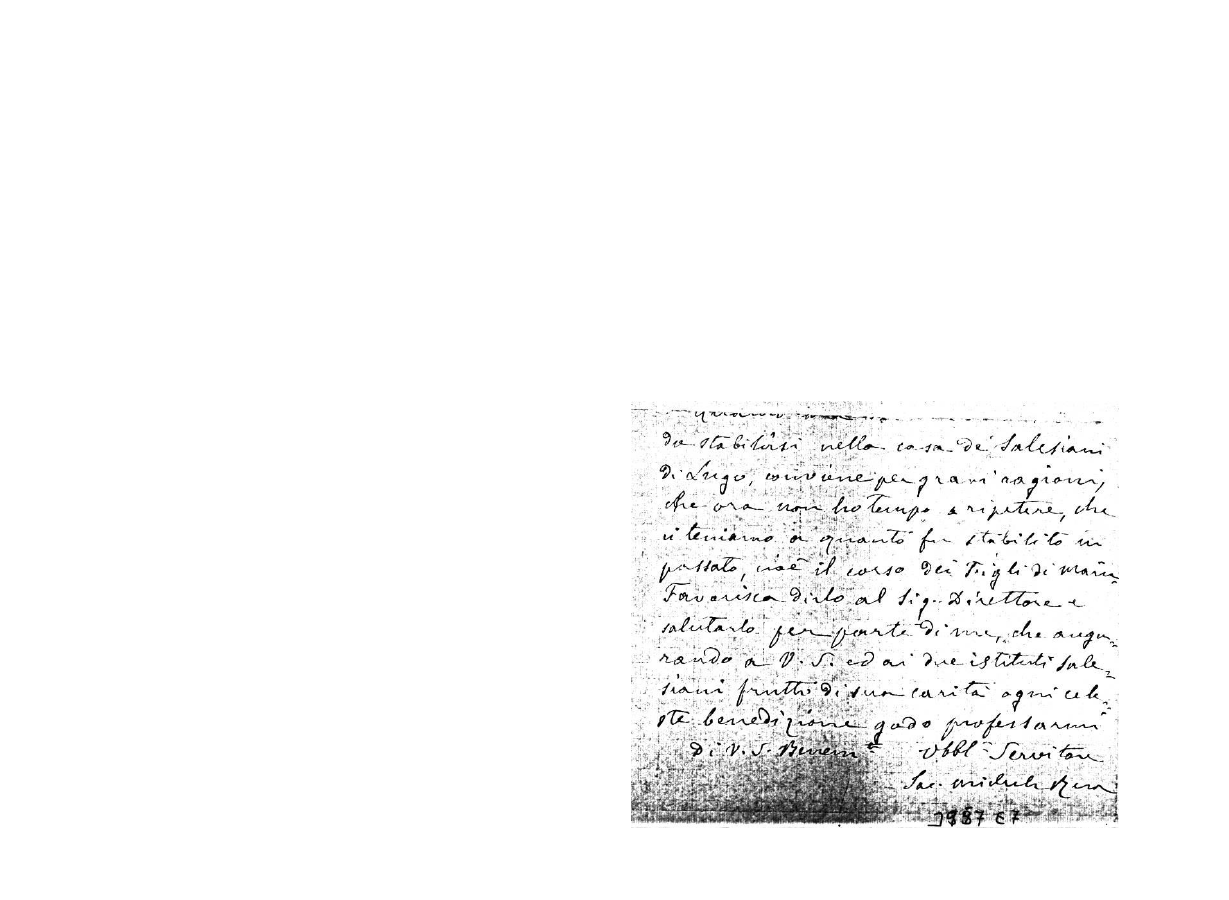 da stabilirsi nella casa de' Salesiani
di Lugo, conviene per gravi ragioni,
che ora non ho tempo a ripetere, che
ci teniamo a quanto fu stabilito in
passato, cioè il corso dei Figli di Maria
Favorisca dirlo al Sig. Direttore e
salutarlo per parte di me, che augu-
rando a V. S. ed ai due istituti Sale-
siani frutti di sua carità ogni cele-
ste benedizione godo professarmi
Di V. S. Benem.ta Obbl. Servitore
Sac. Michele Rua
3987 C7